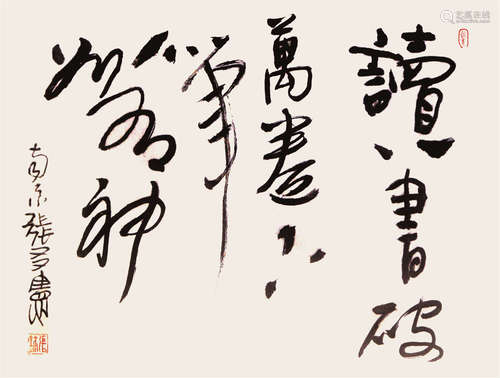 讀書破
萬卷下
筆
如有神
南京張